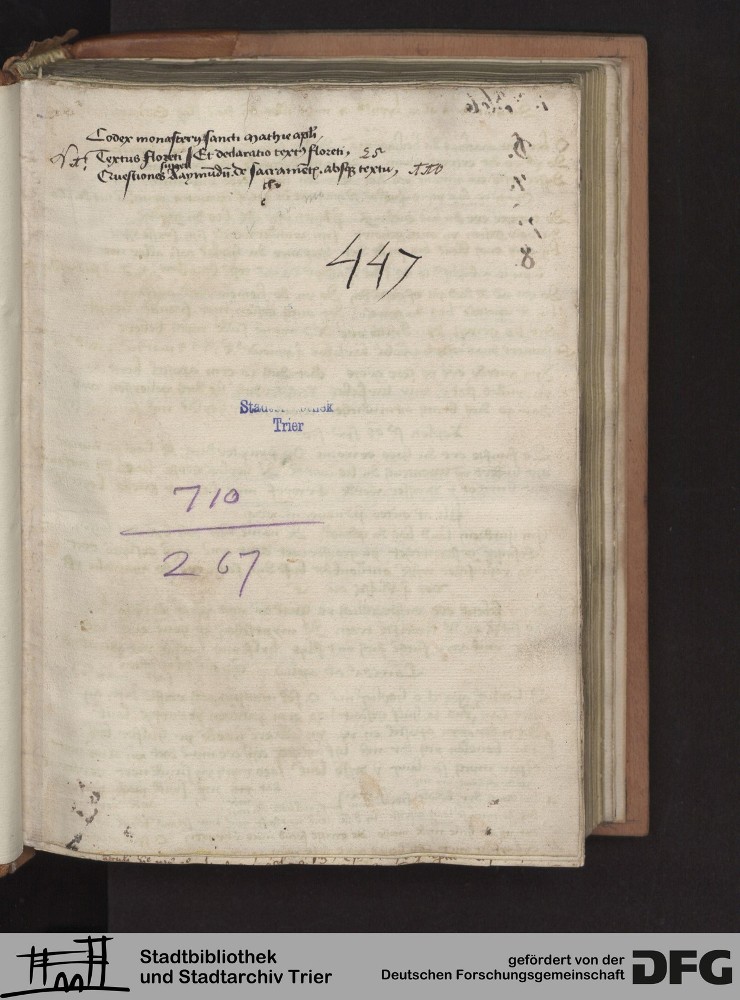 Codex monasterij sancti Mathie apli,
Textus floreti Et declaratio text9 floreti, 25
Questiones Raymudi de sacrament, absq textu,
447
Stad
Trier
710
267
Stadtbibliothek
und Stadtarchiv Trier
gefördert von der
Deutschen Forschungsgemeinschaft
DFG